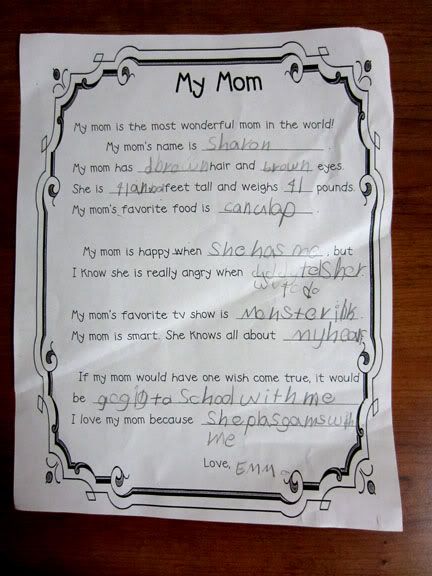 My Mom
My mom is the most wonderful mom in the world!
My mom's name is Sharon.
My mom has dbrown hair and brown eyes.
She is feet tall and weighs 41 pounds.
My mom's favorite food is canulap.
My mom is happy when she has me, but
I know she is really angry when dady telsher
wutodo
My mom's favorite tv show is Monsterjhk.
My mom is smart. She knows all about myhear
If my mom would have one wish come true, it would
be gcgin to school with me
I love my mom because Sheplasgamswith
me
Love, Emma